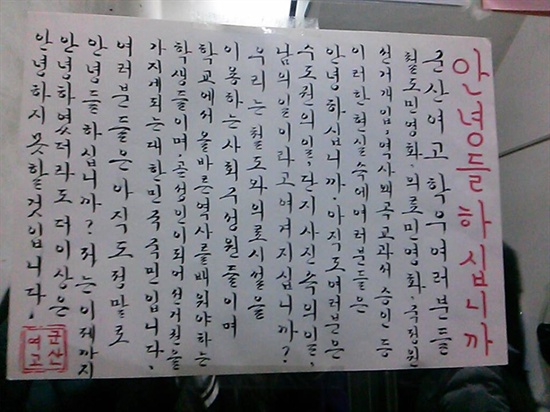 안녕들하십니까
군산여고 학우여러분들
철도민영화·의료민영화·국정원
선거개입, 역사왜곡교과서 승인 등
이러한 현실속에 여러분들은
안녕하십니까. 아직도 여러분은
수도권의 일, 단지 사진 속의 일,
남의 일이라고 여겨지십니까?
우리는 철도와 의료시설을
이용하는 사회구성원들이며
학교에서 올바른 역사를 배워야하는
학생들이며, 곧 성인이되어 선거권을
가지게되는 대한민국 국민입니다.
여러분들은 아직도 정말로
안녕들 하십니까? 저는 이제까지
안녕하였더라도 더이상은
안녕하시 못할것입니다.
군산
여고